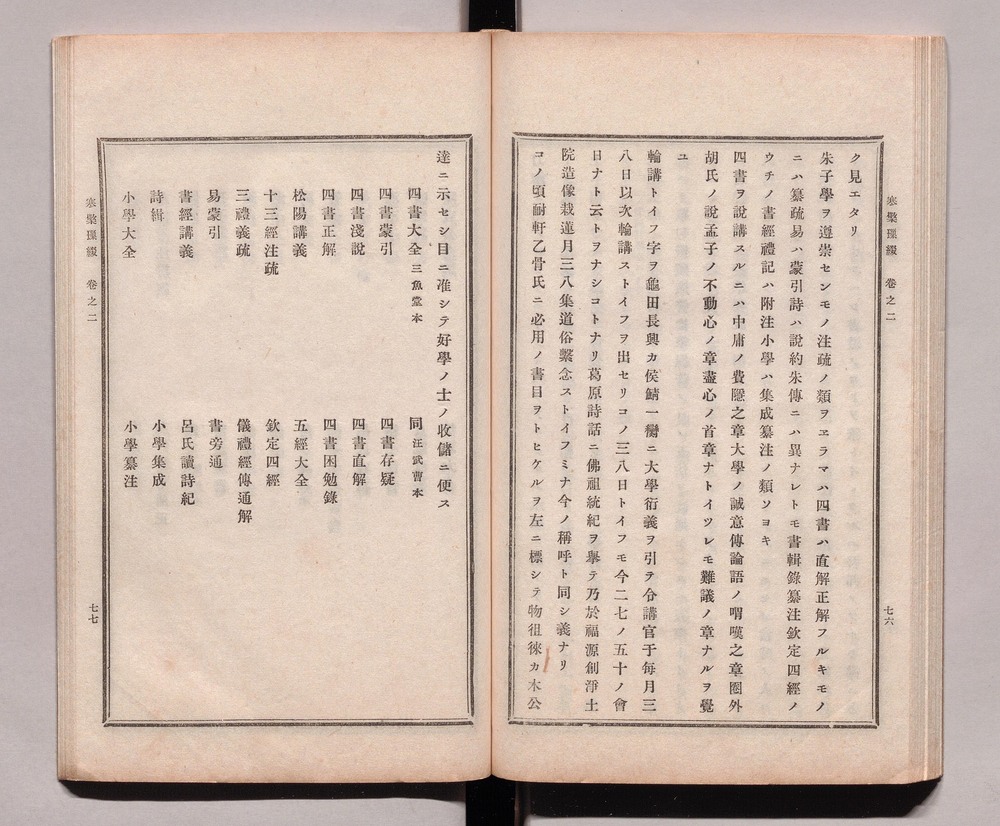 寒檠璅綴 卷之二
七六
ク見エタリ
朱子學ヲ遵崇センモノ注疏ノ類ヲヱラマハ四書ハ直解正解フルキモノ
ニハ纂疏易ハ蒙引詩ハ說約朱傳ニハ異ナレトモ書輯錄纂注欽定四經ノ
ウチノ書經禮記ハ附注小學ハ集成纂注ノ類ソヨキ
四書ヲ說講スルニハ中庸ノ費隱之章大學ノ誠意傳論語ノ喟嘆之章圈外
胡氏ノ說孟子ノ不動心ノ章盡心ノ首章ナトイツレモ難議ノ章ナルヲ覺
ユ
輪講トイフ字ヲ龜田長興カ侯鯖一臠ニ大學衍義ヲ引テ分講官于每月三
八日以次輪講ストイフヲ出セリコノ三八日トイフモ今二七ノ五十ノ會
日ナト云トヲナシコトナリ葛原詩話ニ佛祖統紀ヲ擧テ乃於福源創淨土
院造像栽蓮月三八集道俗繫念ストイフミナ今ノ稱呼ト同シ義ナリ
コノ頃耐軒乙骨氏ニ必用ノ書目ヲトヒケルヲ左ニ標シテ物徂徠カ木公
達ニ示セシ目ニ准シテ好學ノ士ノ收儲ニ便ス
四書大全三魚堂本 同汪武曹本
四書蒙引 四書存疑
四書淺說 四書直解
四書正解 四書困勉錄
松陽講義 五經大全
十三經注疏 欽定四經
三禮義疏 儀禮經傳通解
易蒙引 書旁通
書經講義 呂氏讀詩紀
詩緝 小學集成
小學大全 小學纂注
寒檠璅綴 卷之二
七七